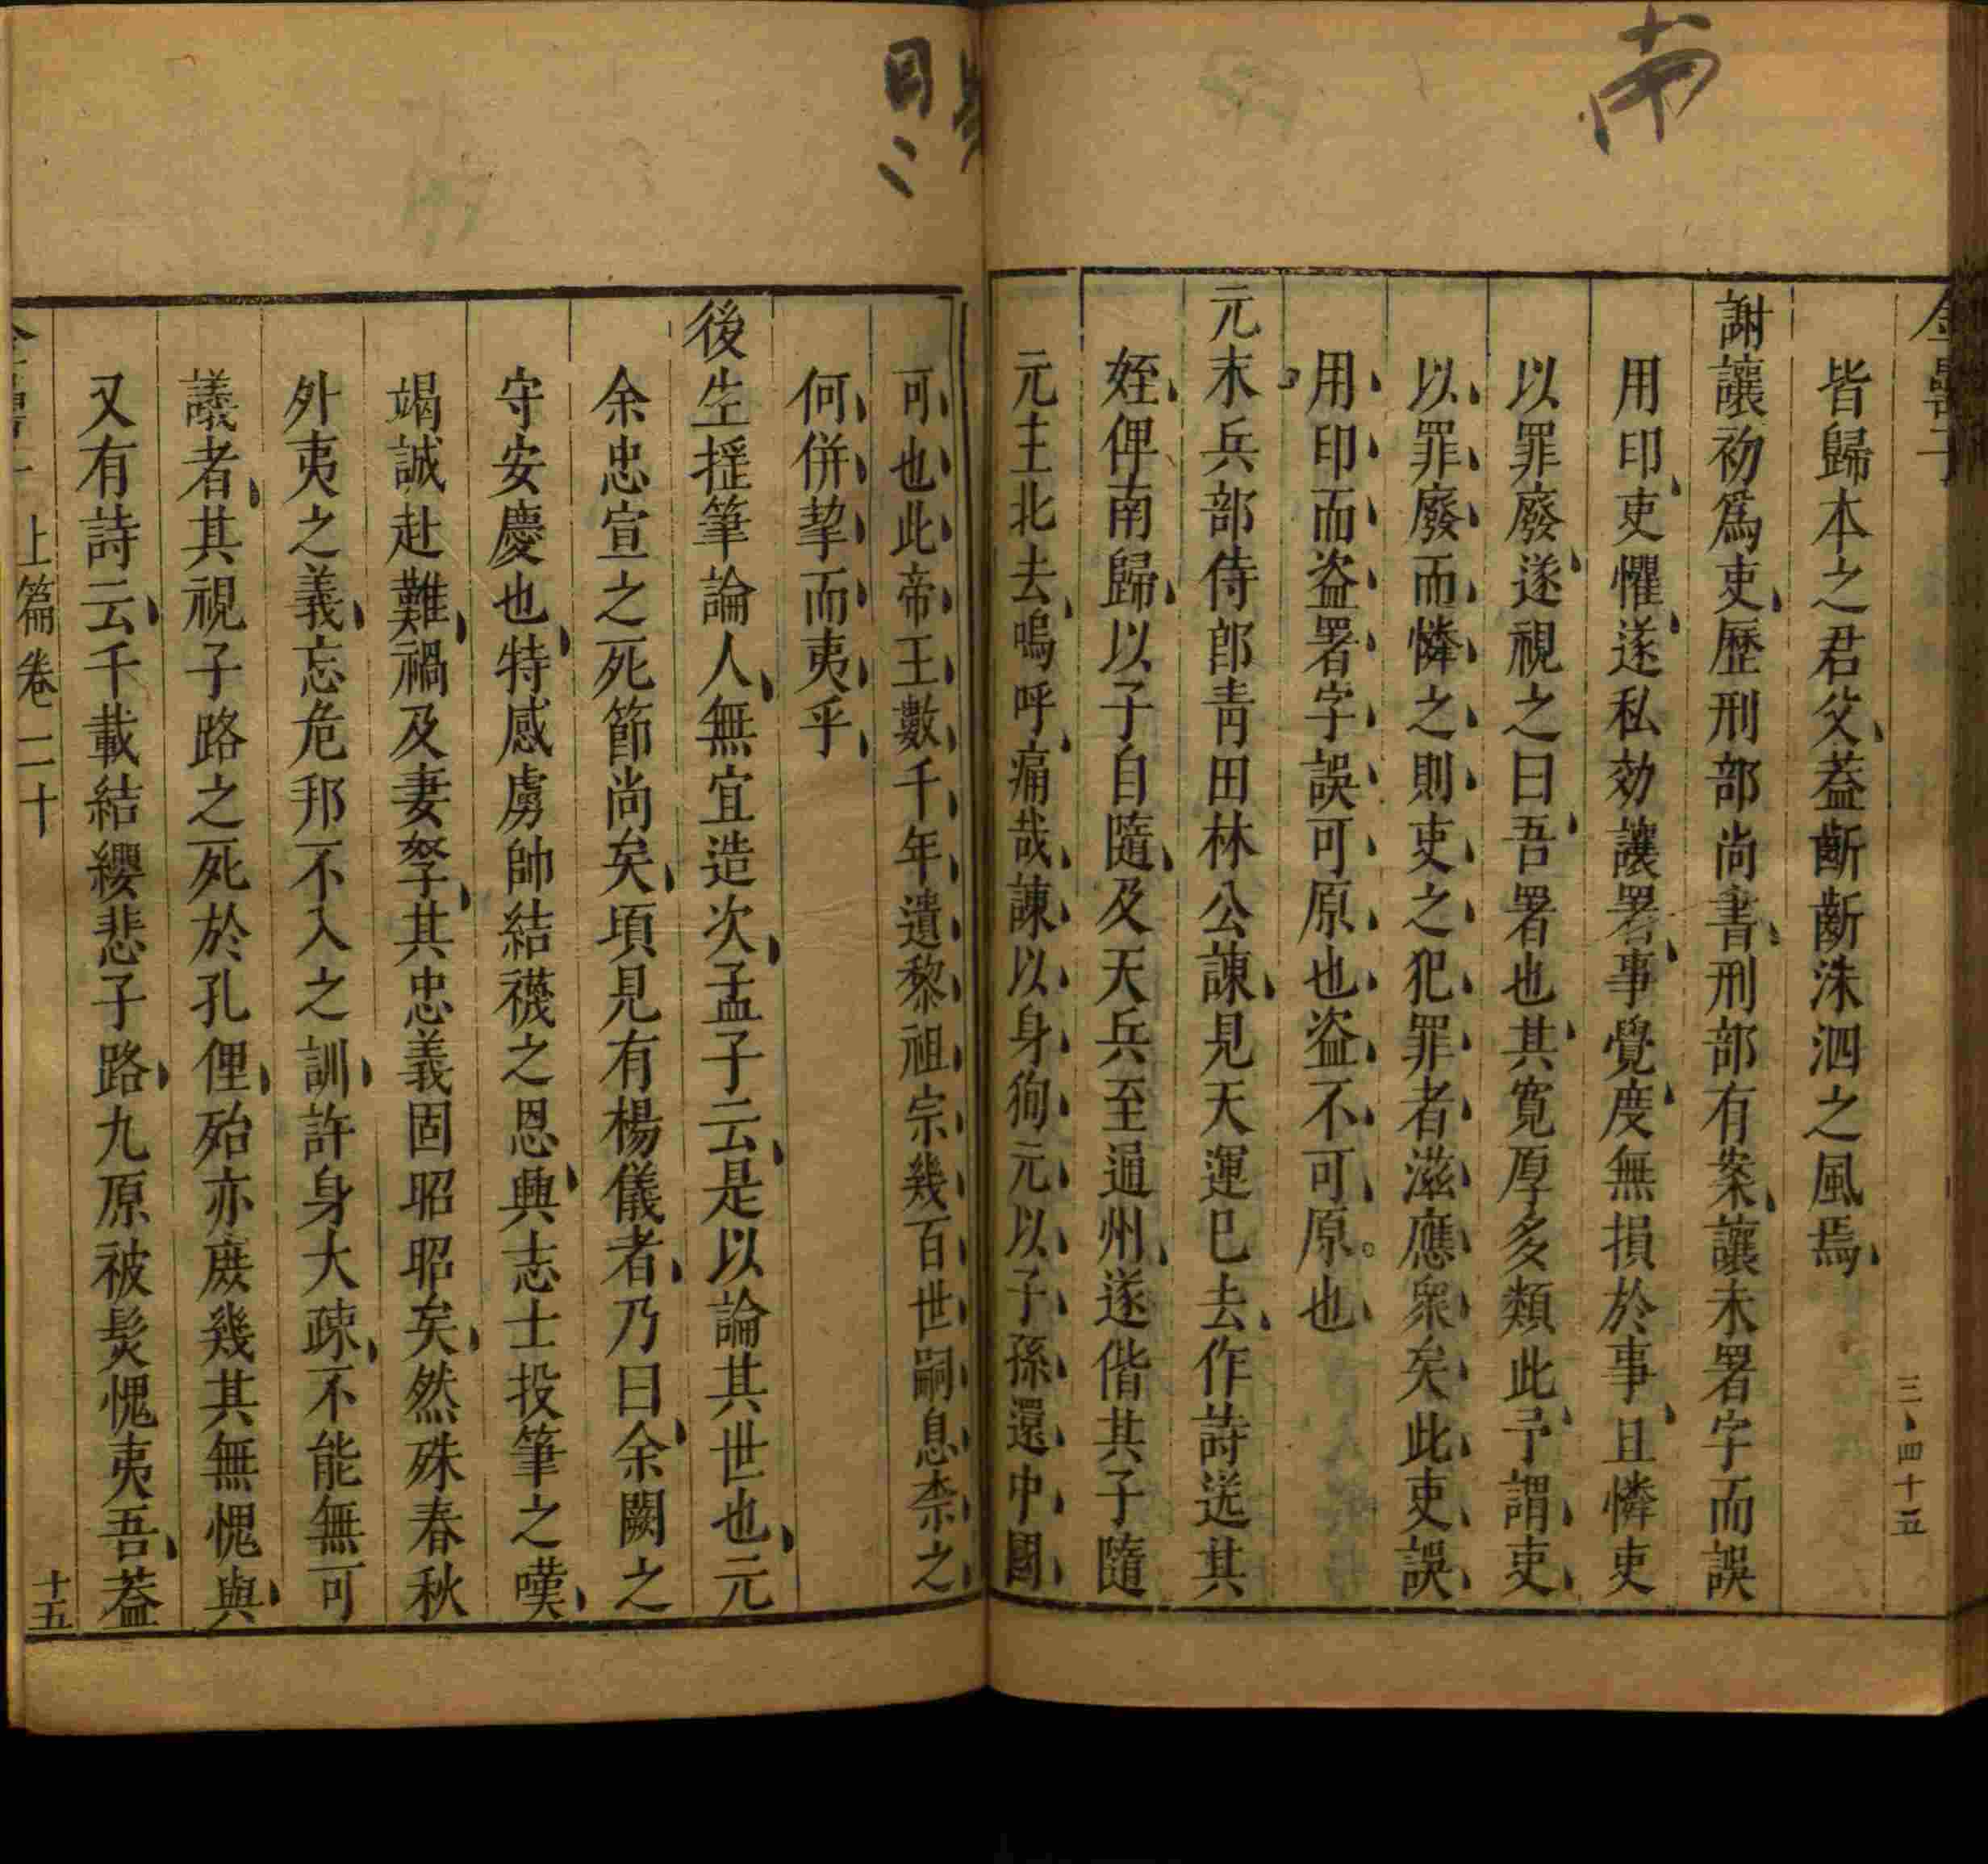 南
皆歸本之君父蓋齗齗洙泗之風焉
謝讓初爲吏歷刑部尚書刑部有案讓未署字而誤
用印吏懼遂私効讓署事覺度無損於事且憐吏
以罪廢遂視之曰吾署也其寬厚多類此予謂吏
以罪廢而憐之則吏之犯罪者滋應衆矣此吏誤
用印而盜署字誤可原也盜不可原也
元末兵部侍郎青田林公諫見天運已去作詩送其
姪俾南歸以子自隨及天兵至通州遂偕其子隨
元主北去嗚呼痛哉諫以身狥元以子孫還中國
三四十五
可也此帝王數千年遺黎祖宗幾百世嗣息柰之
何併挈而夷乎
後生揺筆論人無宜造次孟子云是以論其世也元
余忠宣之死節尚矣頃見有楊儀者乃曰余闕之
守安慶也特感虜帥結襪之恩興志士投筆之嘆
竭誠赴難禍及妻孥其忠義固昭昭矣然殊春秋
外夷之義忘危邦不入之訓許身大疎不能無可
議者其視子路之死於孔俚殆亦庶幾其無愧與
又有詩云千載結纓悲子路九原被髮愧夷吾蓋
上篇卷二十
十五